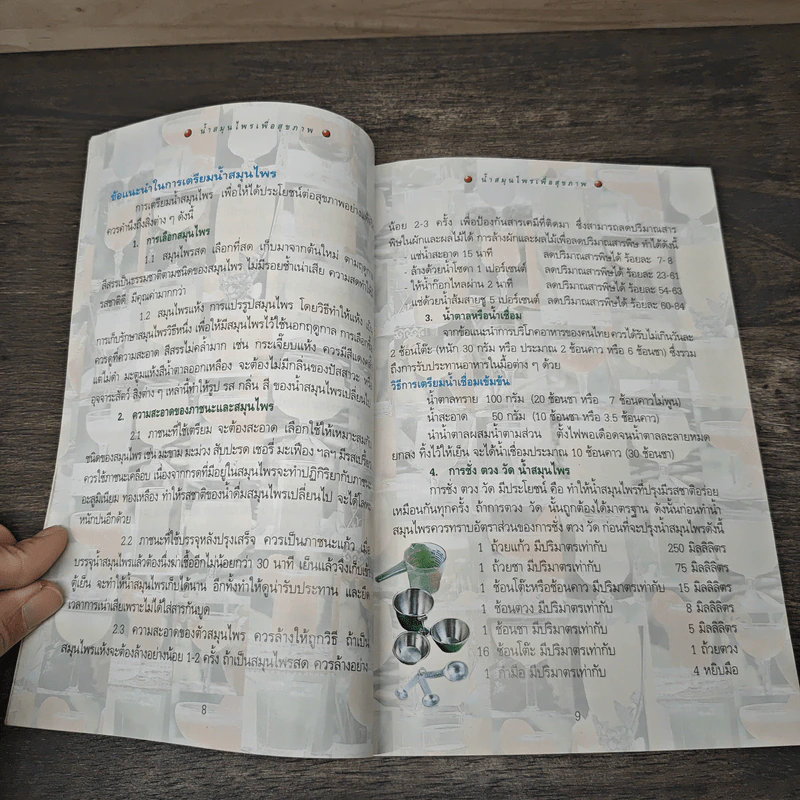 น้ำสมุนไพรเพื่อสุขภาพ
ข้อแนะนำในการเตรียมน้ำสมุนไพร
การเตรียมน้ำสมุนไพร เพื่อให้ได้ประโยชน์ต่อสุขภาพอย่าง
ควรคำนึงถึงสิ่งต่าง ๆ ดังนี้
1. การเลือกสมุนไพร
1.1 สมุนไพรสด เลือกที่สด เก็บมาจากต้นใหม่ ตามฤดู
สีสรรเป็นธรรมชาติตามชนิดของสมุนไพร ไม่มีรอยช้ำเน่าเสีย ความสดทำให้
รสชาติดี มีคุณค่ามากกว่า
1.2 สมุนไพรแห้ง การแปรรูปสมุนไพร โดยวิธีทำให้แห้ง
การเก็บรักษาสมุนไพรวิธีหนึ่ง เพื่อให้มีสมุนไพรไว้ใช้นอกฤดูกาล การเลือกซื้อ
ควรดูที่ความสะอาด สีสรรไม่คล้ำมาก เช่น กระเจี๊ยบแห้ง ควรมีสีแดงคล้ำ
แต่ไม่ดำ มะตูมแห้งสีน้ำตาลออกเหลือง จะต้องไม่มีกลิ่นของปัสสาวะ หรือ
อุจจาระสัตว์ สิ่งต่าง ๆ เหล่านี้ทำให้รูป รส กลิ่น สี ของน้ำสมุนไพรเปลี่ยนไป
2. ความสะอาดของภาชนะและสมุนไพร
2.1 ภาชนะที่ใช้เตรียม จะต้องสะอาด เลือกใช้ให้เหมาะสมกับ
ชนิดของสมุนไพร เช่น มะขาม มะม่วง สับปะรด เชอรี่ มะเฟือง ฯลฯ มีรสเปรี้ยว
ควรใช้ภาชนะเคลือบ เนื่องจากกรดที่มีอยู่ในสมุนไพรจะทำปฏิกิริยากับภาชนะ
อะลูมิเนียม ทองเหลือง ทำให้รสชาติของน้ำดื่มสมุนไพรเปลี่ยนไป จะได้โลหะ
หนักปนอีกด้วย
2.2 ภาชนะที่ใช้บรรจุหลังปรุงเสร็จ ควรเป็นภาชนะแก้ว เมื่อ
บรรจุน้ำสมุนไพรแล้วต้องนึ่งฆ่าเชื้ออีกไม่น้อยกว่า 30 นาที เย็นแล้วจึงเก็บเข้า
ตู้เย็น จะทำให้น้ำสมุนไพรเก็บได้นาน อีกทั้งทำให้ดูน่ารับประทาน และยืด
เวลาการเน่าเสียเพราะไม่ได้ใส่สารกันบูด
2.3 ความสะอาดของตัวสมุนไพร ควรล้างให้ถูกวิธี ถ้าเป็น
สมุนไพรแห้งจะต้องล้างอย่างน้อย 1-2 ครั้ง ถ้าเป็นสมุนไพรสด ควรล้างอย่าง
8
น้ำสมุนไพรเพื่อสุขภาพ
น้อย 2-3 ครั้ง เพื่อป้องกันสารเคมีที่ติดมา ซึ่งสามารถลดปริมาณสาร
พิษในผักและผลไม้ได้ การล้างผักและผลไม้เพื่อลดปริมาณสารพิษ ทำได้ดังนี้
- แช่น้ำสะอาด 15 นาที ลดปริมาณสารพิษได้ ร้อยละ 7-8
- ล้างด้วยน้ำโซดา 1 เปอร์เซนต์ ลดปริมาณสารพิษได้ ร้อยละ 23-61
- ให้น้ำก๊อกไหลผ่าน 2 นาที ลดปริมาณสารพิษได้ ร้อยละ 54-63
- แช่ด้วยน้ำส้มสายชู 5 เปอร์เซนต์ ลดปริมาณสารพิษได้ ร้อยละ 60-84
3. น้ำตาลหรือน้ำเชื่อม
จากข้อแนะนำการบริโภคอาหารของคนไทย ควรได้รับไม่เกินวันละ
2 ช้อนโต๊ะ (หนัก 30 กรัม หรือ ประมาณ 2 ช้อนคาว หรือ 6 ช้อนชา) ซึ่งรวม
ถึงการรับประทานอาหารในมื้อต่าง ๆ ด้วย
วิธีการเตรียมน้ำเชื่อมเข้มข้น
น้ำตาลทราย 100 กรัม (20 ช้อนชา หรือ 7 ช้อนคาวไม่พูน)
น้ำสะอาด 50 กรัม (10 ช้อนชา หรือ 3.5 ช้อนคาว)
นำน้ำตาลผสมน้ำตามส่วน ตั้งไฟพอเดือดจนน้ำตาลละลายหมด
ยกลง ทิ้งไว้ให้เย็น จะได้น้ำเชื่อมประมาณ 10 ช้อนคาว (30 ช้อนชา)
4. การชั่ง ตวง วัด น้ำสมุนไพร
การชั่ง ตวง วัด มีประโยชน์ คือ ทำให้น้ำสมุนไพรที่ปรุงมีรสชาติอร่อย
เหมือนกันทุกครั้ง ถ้าการตวง วัด นั้นถูกต้องได้มาตรฐาน ดังนั้นก่อนทำน้ำ
สมุนไพรควรทราบอัตราส่วนของการชั่ง ตวง วัด ก่อนที่จะปรุงน้ำสมุนไพรดังนี้
1 ถ้วยแก้ว มีปริมาตรเท่ากับ 250 มิลลิลิตร
1 ถ้วยชา มีปริมาตรเท่ากับ 75 มิลลิลิตร
1 ช้อนโต๊ะหรือช้อนคาว มีปริมาตรเท่ากับ 15 มิลลิลิตร
1 ช้อนตวง มีปริมาตรเท่ากับ 8 มิลลิลิตร
1 ช้อนชา มีปริมาตรเท่ากับ 5 มิลลิลิตร
16 ช้อนโต๊ะ มีปริมาตรเท่ากับ 1 ถ้วยตวง
1 กำมือ มีปริมาตรเท่ากับ 4 หยิบมือ
9